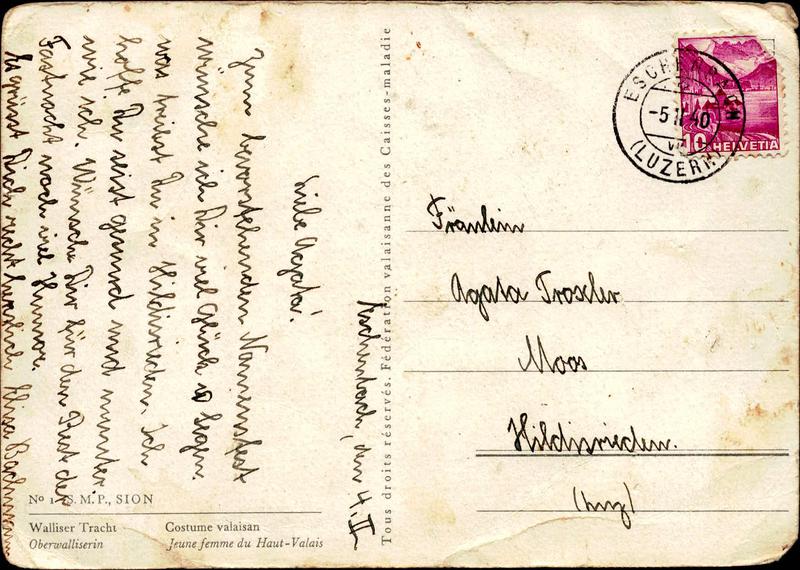 Eschenbach, den 4. II.
Liebe Agata!
Zum bevorstehenden Namensfest
wünsche ich Dir viel Glück & Segen.
was treibst Du in Hildisrieden. Ich
hoffe Du seist gesund und munter
wie ich. Wünsche Dir für den Rest der
Fastnacht noch viel Humor.
Es grüsst Dich recht herzlich Elisa Bachmann
No 1 S. M. P., SION
Walliser Tracht Costume valaisan
Oberwalliserin Jeune femme du Haut-Valais
Tous droits réservés. Fédération valaisanne des Caisses-maladie
ESCHENBACH
-5.II.40
VI
(LUZERN)
10 HELVETIA
Fräulein
Agata Troxler
Moos
Hildisrieden.
(Luz)